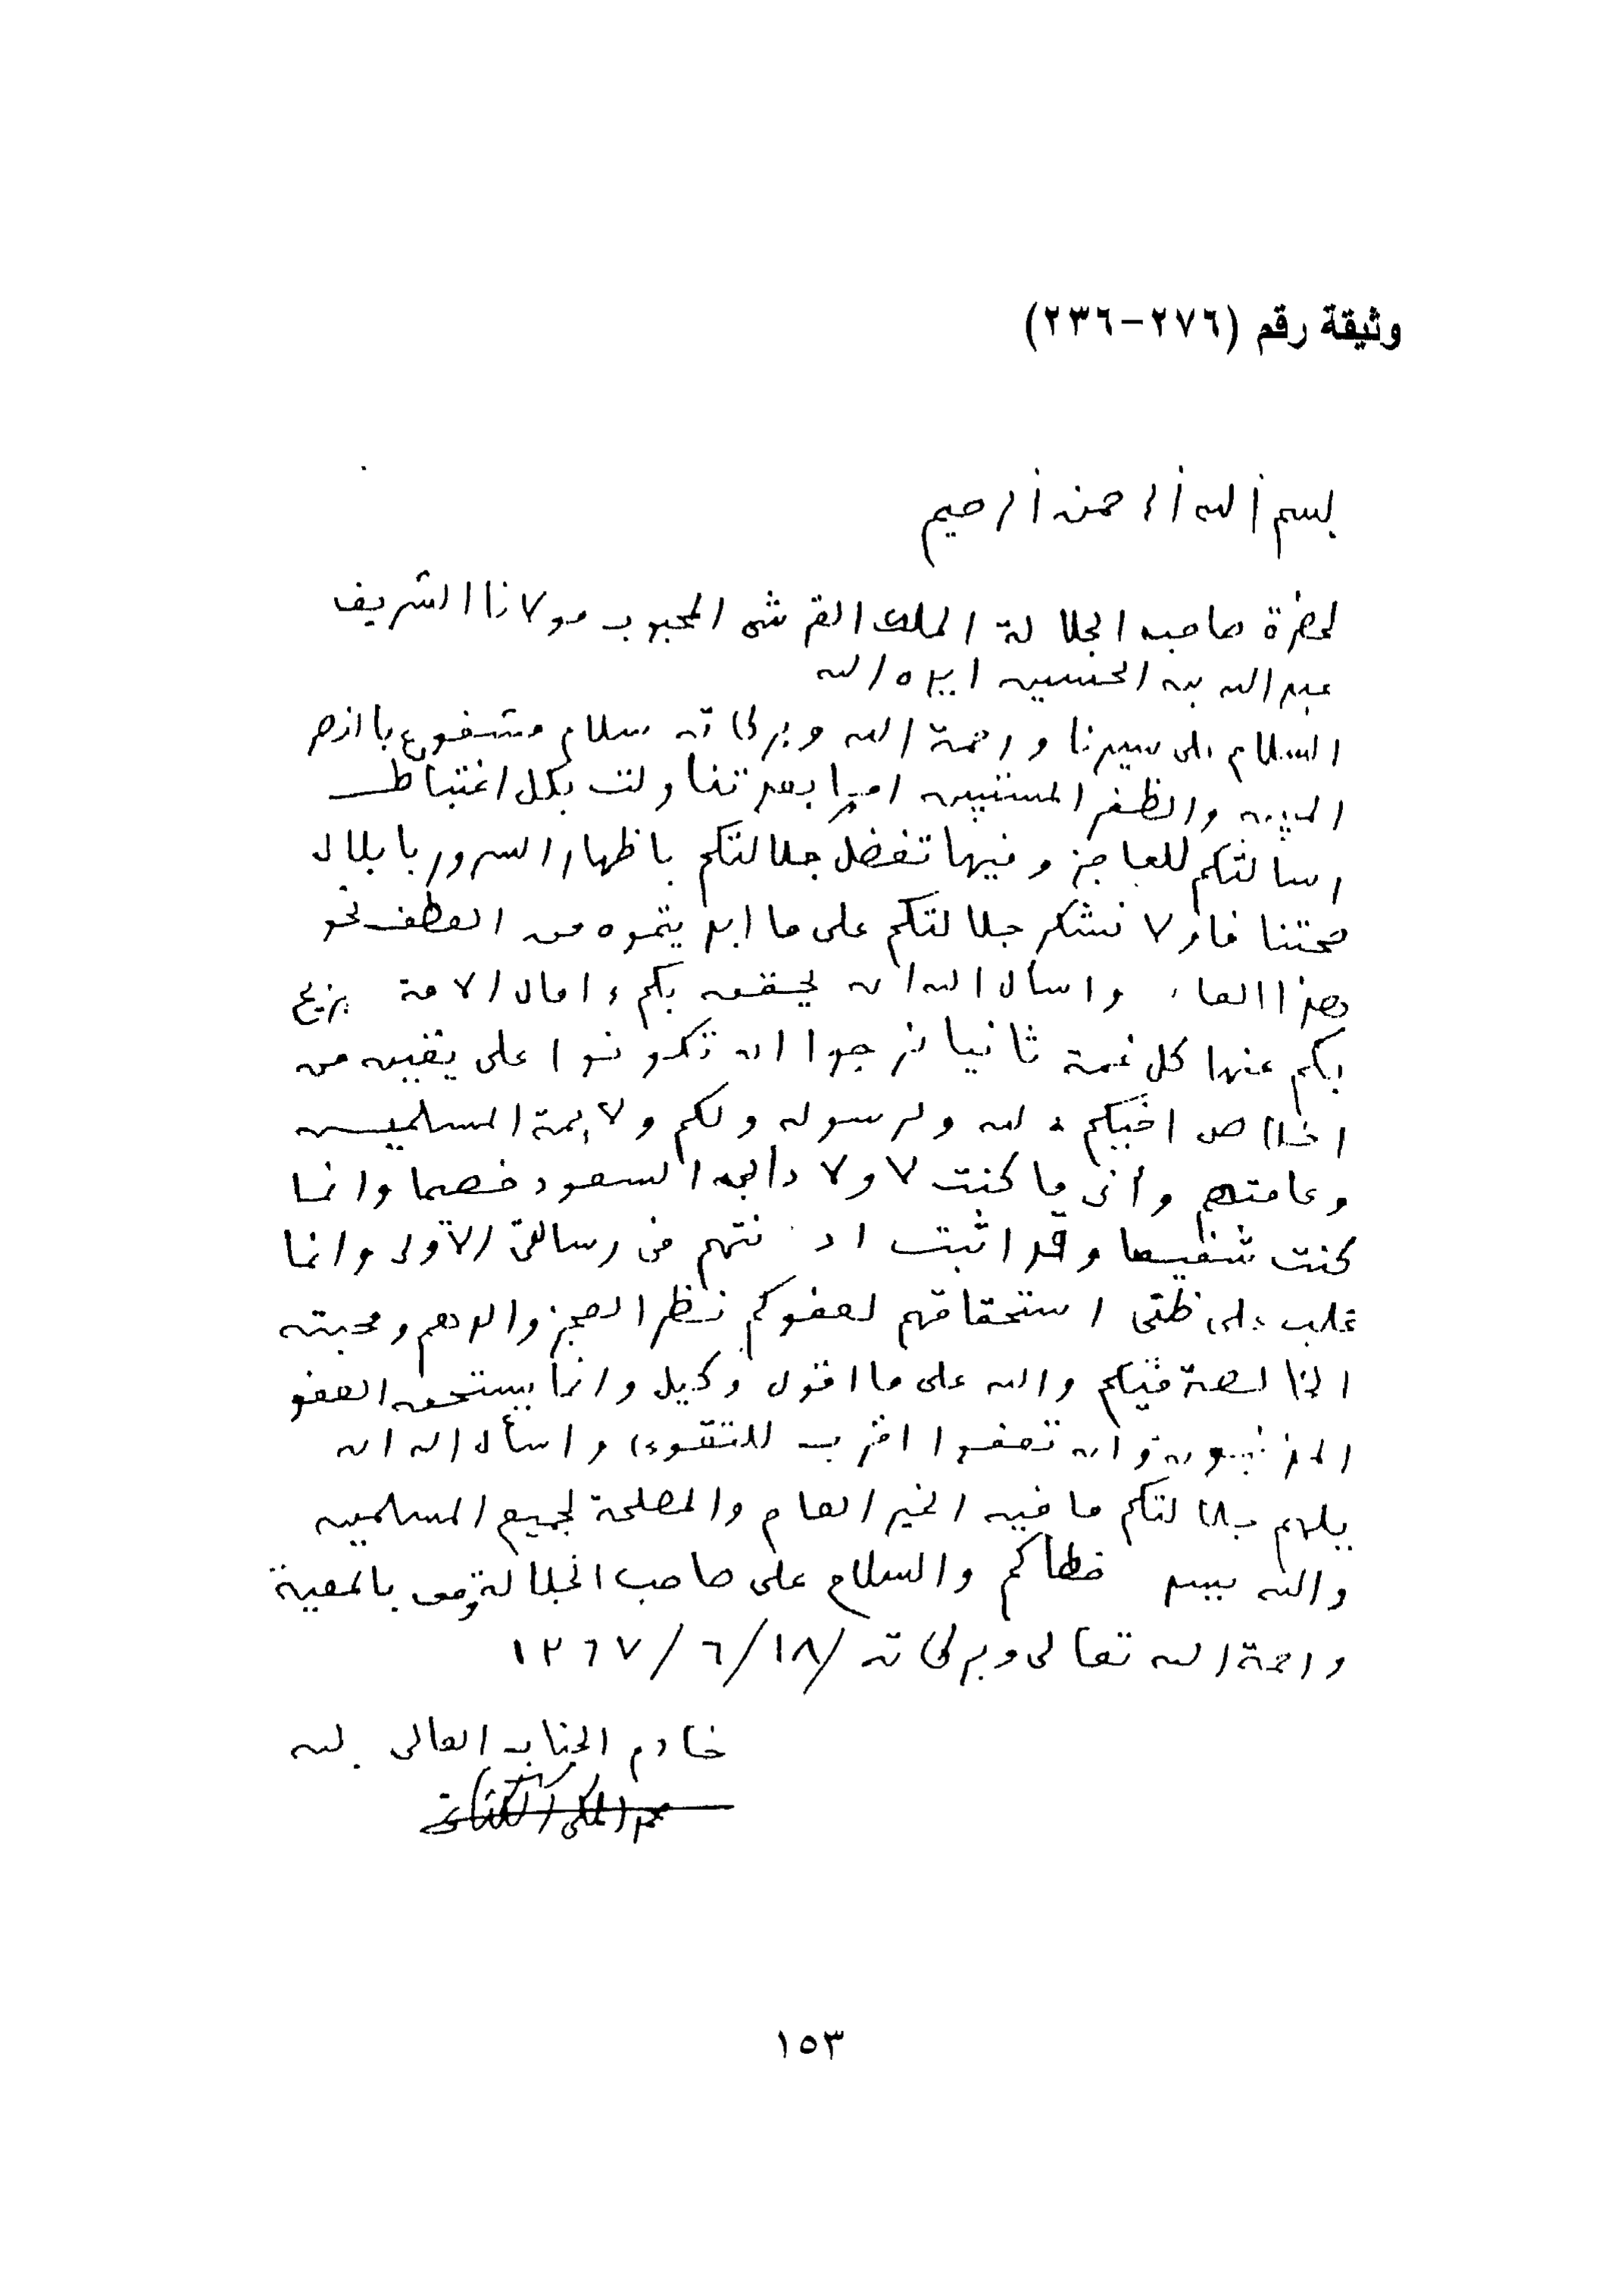 وثيقة رقم (٢٧٦-٢٣٦)
بسم الله الرحمن الرحيم
لحضرة صاحب الجلالة الملك القرشي المحبوب مولانا الشريف
عبد الله بن الحسين ايده الله
السلام على سيدنا ورحمة الله وبركاته سلام مشفوع بالنصر
المبين والظفر المستبين اما بعد تناولت بكل اغتباط
رسالتكم للعاجز وفيها تفضل جلالتكم باظهار السرور بابلال
صحتنا فاولا نشكر جلالتكم على ما ابديتموه من العطف نحو
هذا واسال الله ان يحقق بكم امال الامة يزيح
بكم عنها كل غمة ثانيا نرجوا ان تكونوا على يقين من
اخلاص اخيكم لله ولرسوله ولكم ولايمة المسلمين
وعامتهم وأني ما كنت لاولاد السعود خصما وانما
كنت شفيعا وقد اثبت نتهم في رسالتي الاولى وانما
غلب على ظني استحقاقهم لعفوكم نظر العجز والدهم ومحبته
الخالصة فيكم والله على ما اقول وكيل وانما يستحق العفو
المذنبون وان تعفوا اقرب للتقوى واسأل الله ان
يلهم جلالتكم ما فيه الخير العام والمصلحة لجميع المسلمين
والله يسدد خطاكم والسلام على صاحب الجلالة ومن بالمعية
ورحمة الله تعالى وبركاته ١٨/٦/١٣٦٧
خادم الجناب العالي
محمد المكي الكتاني
١٥٣